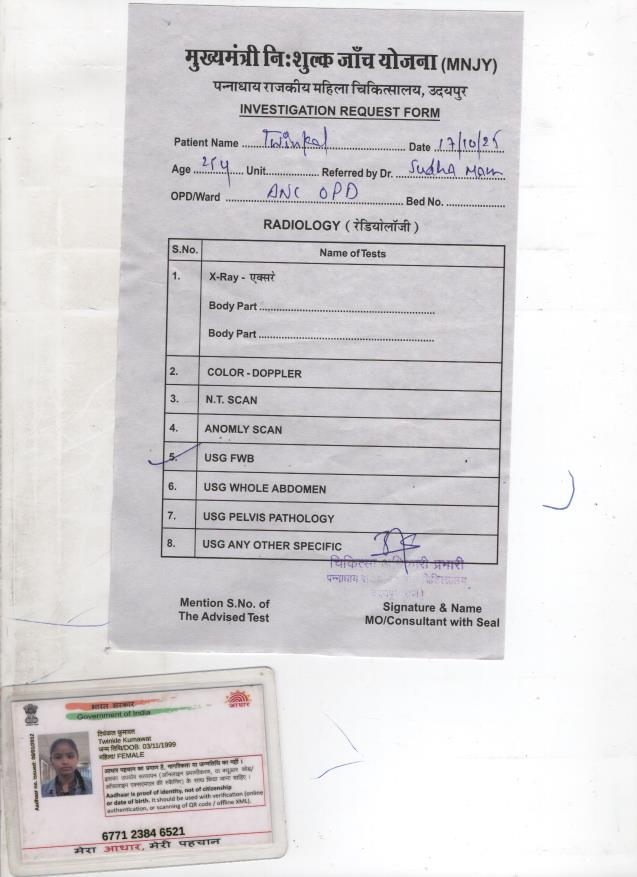 मुख्यमंत्री निःशुल्क जाँच योजना (MNJY)
पन्नाधाय राजकीय महिला चिकित्सालय, उदयपुर
INVESTIGATION REQUEST FORM
Patient Name Twinkal Date 17/10/25
Age 25y Unit Referred by Dr. Sudha Mam
OPD/Ward ANC OPD Bed No.
RADIOLOGY ( रेडियोलॉजी )
S.No. Name of Tests
1. X-Ray - एक्सरे
Body Part
Body Part
2. COLOR - DOPPLER
3. N.T. SCAN
4. ANOMLY SCAN
5. USG FWB
6. USG WHOLE ABDOMEN
7. USG PELVIS PATHOLOGY
8. USG ANY OTHER SPECIFIC
चिकित्सा अधिकारी प्रभारी
पन्नाधाय चिकित्सालय
Mention S.No. of
The Advised Test
Signature & Name
MO/Consultant with Seal
भारत सरकार
Government of India
आधार
ट्विंकल कुमावत
Twinkle Kumawat
जन्म तिथि/DOB: 03/11/1999
महिला/ FEMALE
आधार पहचान का प्रमाण है, नागरिकता या जन्मतिथि का नहीं ।
Aadhaar is proof of identity, not of citizenship
or date of birth. It should be used with verification (online
authentication, or scanning of QR code / offline XML).
6771 2384 6521
मेरा आधार, मेरी पहचान